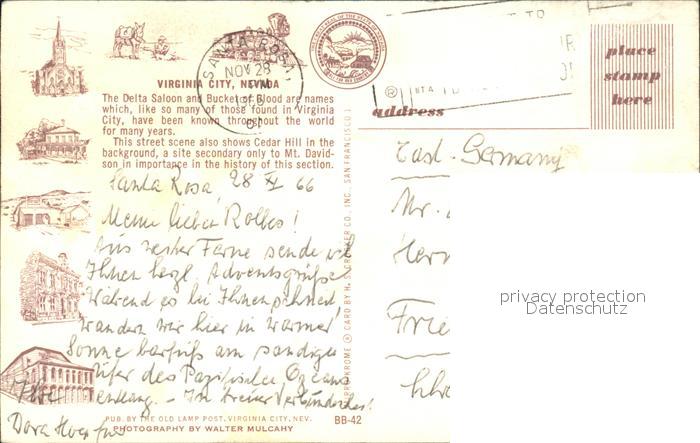 VIRGINIA CITY, NEVADA
The Delta Saloon and Bucket of Blood are names
which, like so many of those found in Virginia
City, have been known throughout the world
for many years.
This street scene also shows Cedar Hill in the
background, a site secondary only to Mt. David-
son in importance in the history of this section.
SANTA ROSA,
NOV 28
PM
place
stamp
here
address
Santa Rosa, 28 XI 66
Meine lieben Rolbes!
Aus weiter Ferne sende ich
Ihnen herzl. Adventsgrüße
Während es bei Ihnen schneit
wandern wir hier in warmer
Sonne barfuß am sandigen
Ufer des Pazifischen Ozeans
entlang. - In treuer Verbundenheit
Ihre
Dora
East-Germany
Mr.
Herr
Frie
PUB. BY THE OLD LAMP POST, VIRGINIA CITY, NEV.
PHOTOGRAPHY BY WALTER MULCAHY
BB-42
CARD BY H. S. CROCKER CO., INC., SAN FRANCISCO 1
privacy protection
Datenschutz